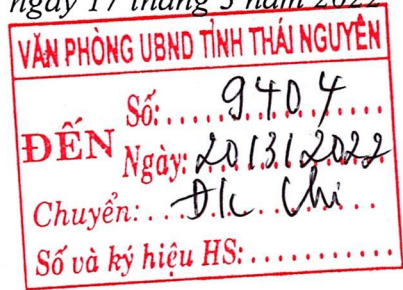 ngày 17 tháng 3 năm 2022
VĂN PHÒNG UBND TỈNH THÁI NGUYÊN
ĐẾN
Số: 9404
Ngày: 20/3/2022
Chuyển: Đ/c Chi
Số và ký hiệu HS: